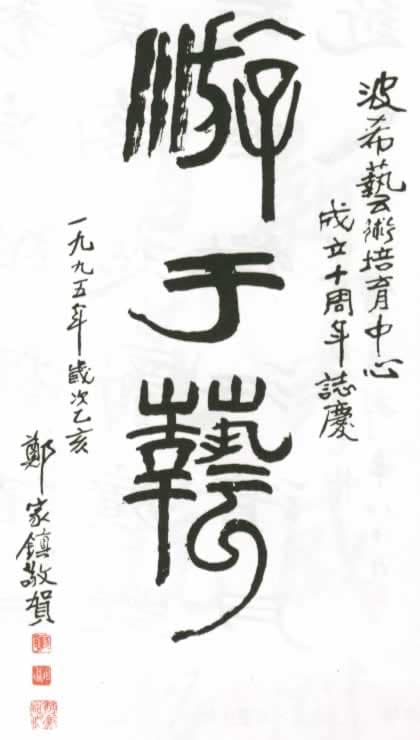 波希藝術培育中心
成立十周年誌慶
游于藝
一九九五年歲次乙亥
鄭家鎮敬賀